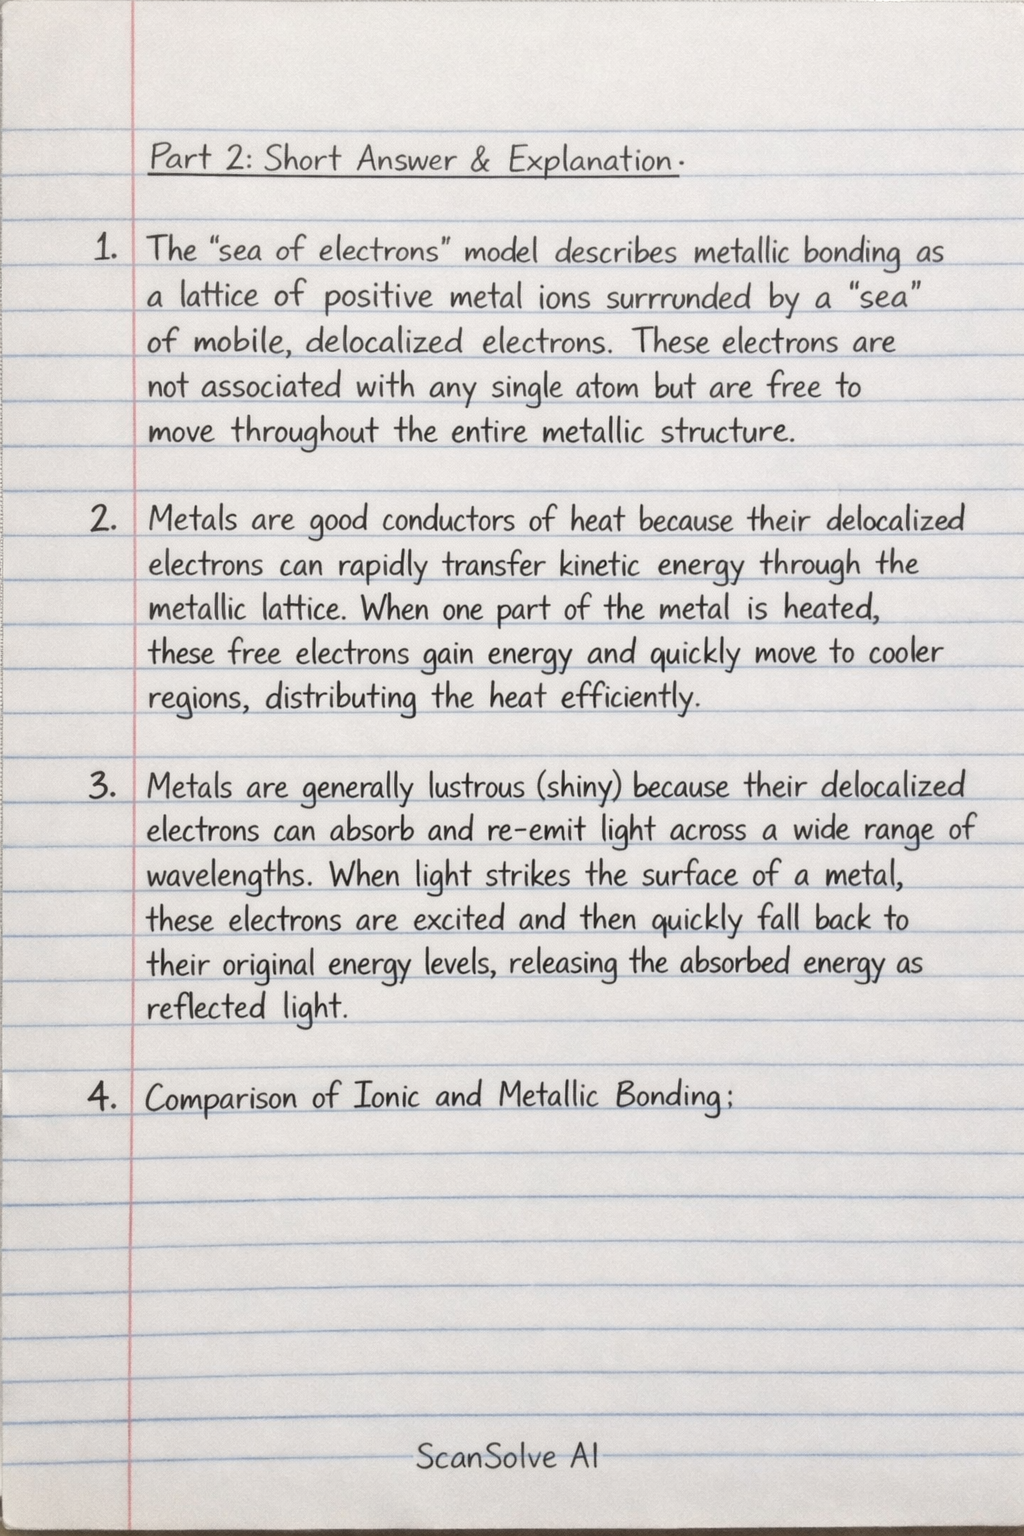 Part 2: Short Answer & Explanation.
1. The "sea of electrons" model describes metallic bonding as
a lattice of positive metal ions surrrunded by a "sea"
of mobile, delocalized electrons. These electrons are
not associated with any single atom but are free to
move throughout the entire metallic structure.
2. Metals are good conductors of heat because their delocalized
electrons can rapidly transfer kinetic energy through the
metallic lattice. When one part of the metal is heated,
these free electrons gain energy and quickly move to cooler
regions, distributing the heat efficiently.
3. Metals are generally lustrous (shiny) because their delocalized
electrons can absorb and re-emit light across a wide range of
wavelengths. When light strikes the surface of a metal,
these electrons are excited and then quickly fall back to
their original energy levels, releasing the absorbed energy as
reflected light.
4. Comparison of Ionic and Metallic Bonding;
ScanSolve AI